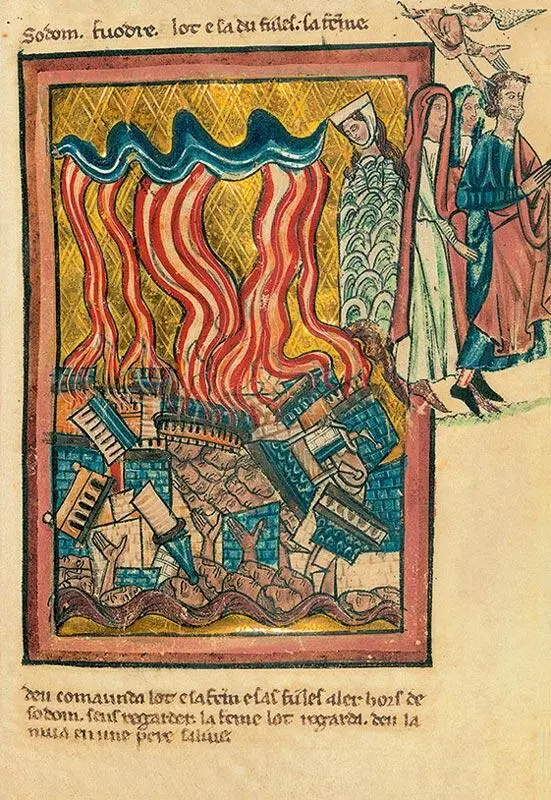 Sodom. fuodre. lot e sa du fules. sa feme.
deu comaunda lot e sa fem e sas fules aler hors de
sodom. seus regarder. la feme lot regarda. deu la
mua en une pere